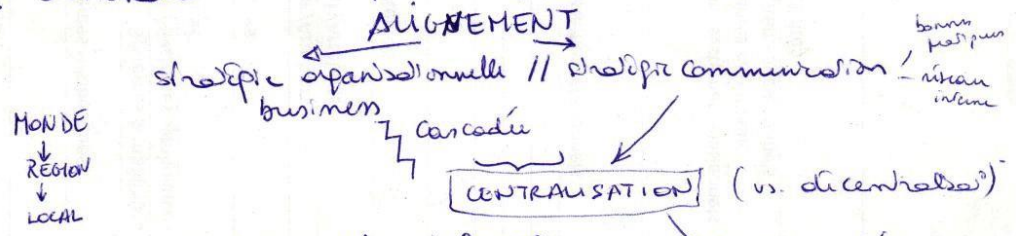 ALIGNEMENT
stratégie organisationnelle // stratégie communication
business
bonnes
pratiques
- réseau
interne
Cascadée
MONDE
↓
RÉGION
↓
LOCAL
CENTRALISATION (vs. décentralisa°)